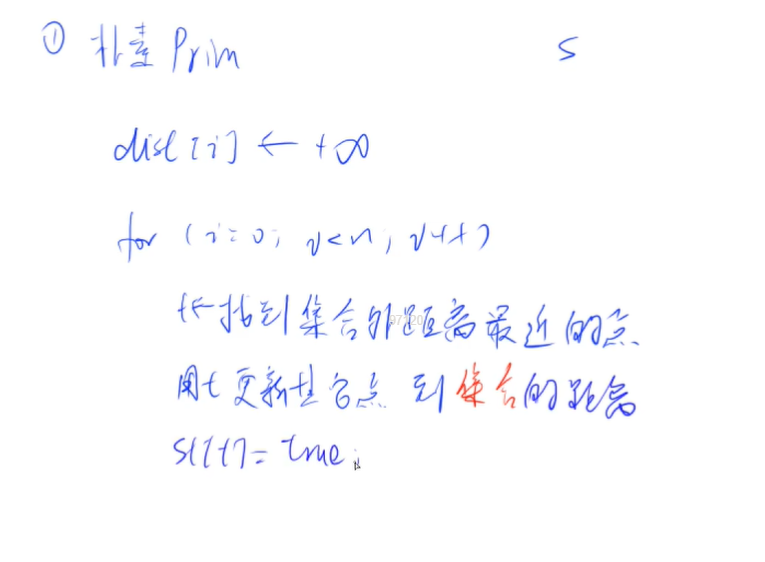 ① 朴素Prim S
dist[i] ← +∞
for (i=0; i<n; i++)
t←找到集合外距离最近的点
用t更新其它点到集合的距离
st[t]=true;